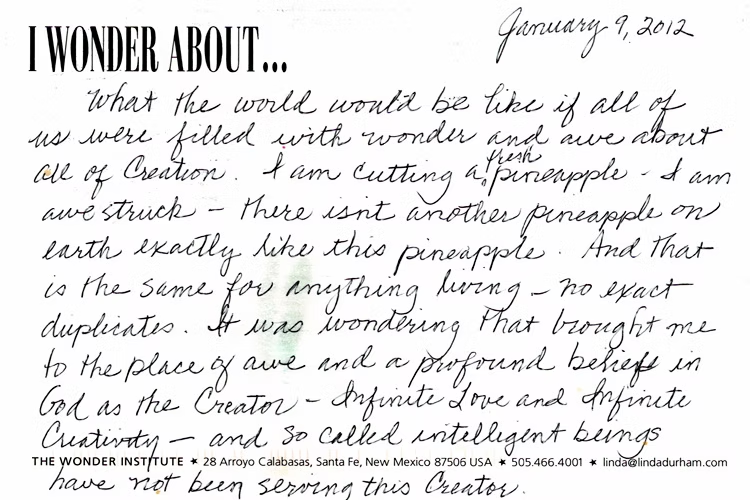 January 9, 2012
I WONDER ABOUT...
What the world would be like if all of
us were filled with wonder and awe about
all of Creation. I am cutting a fresh pineapple - I am
awestruck - there isn't another pineapple on
earth exactly like this pineapple. And that
is the same for anything living - no exact
duplicates. It was wondering that brought me
to the place of awe and a profound belief in
God as the Creator - Infinite Love and Infinite
Creativity - and so called intelligent beings
THE WONDER INSTITUTE ★ 28 Arroyo Calabasas, Santa Fe, New Mexico 87506 USA ★ 505.466.4001 ★ linda@lindadurham.com
have not been serving this Creator.